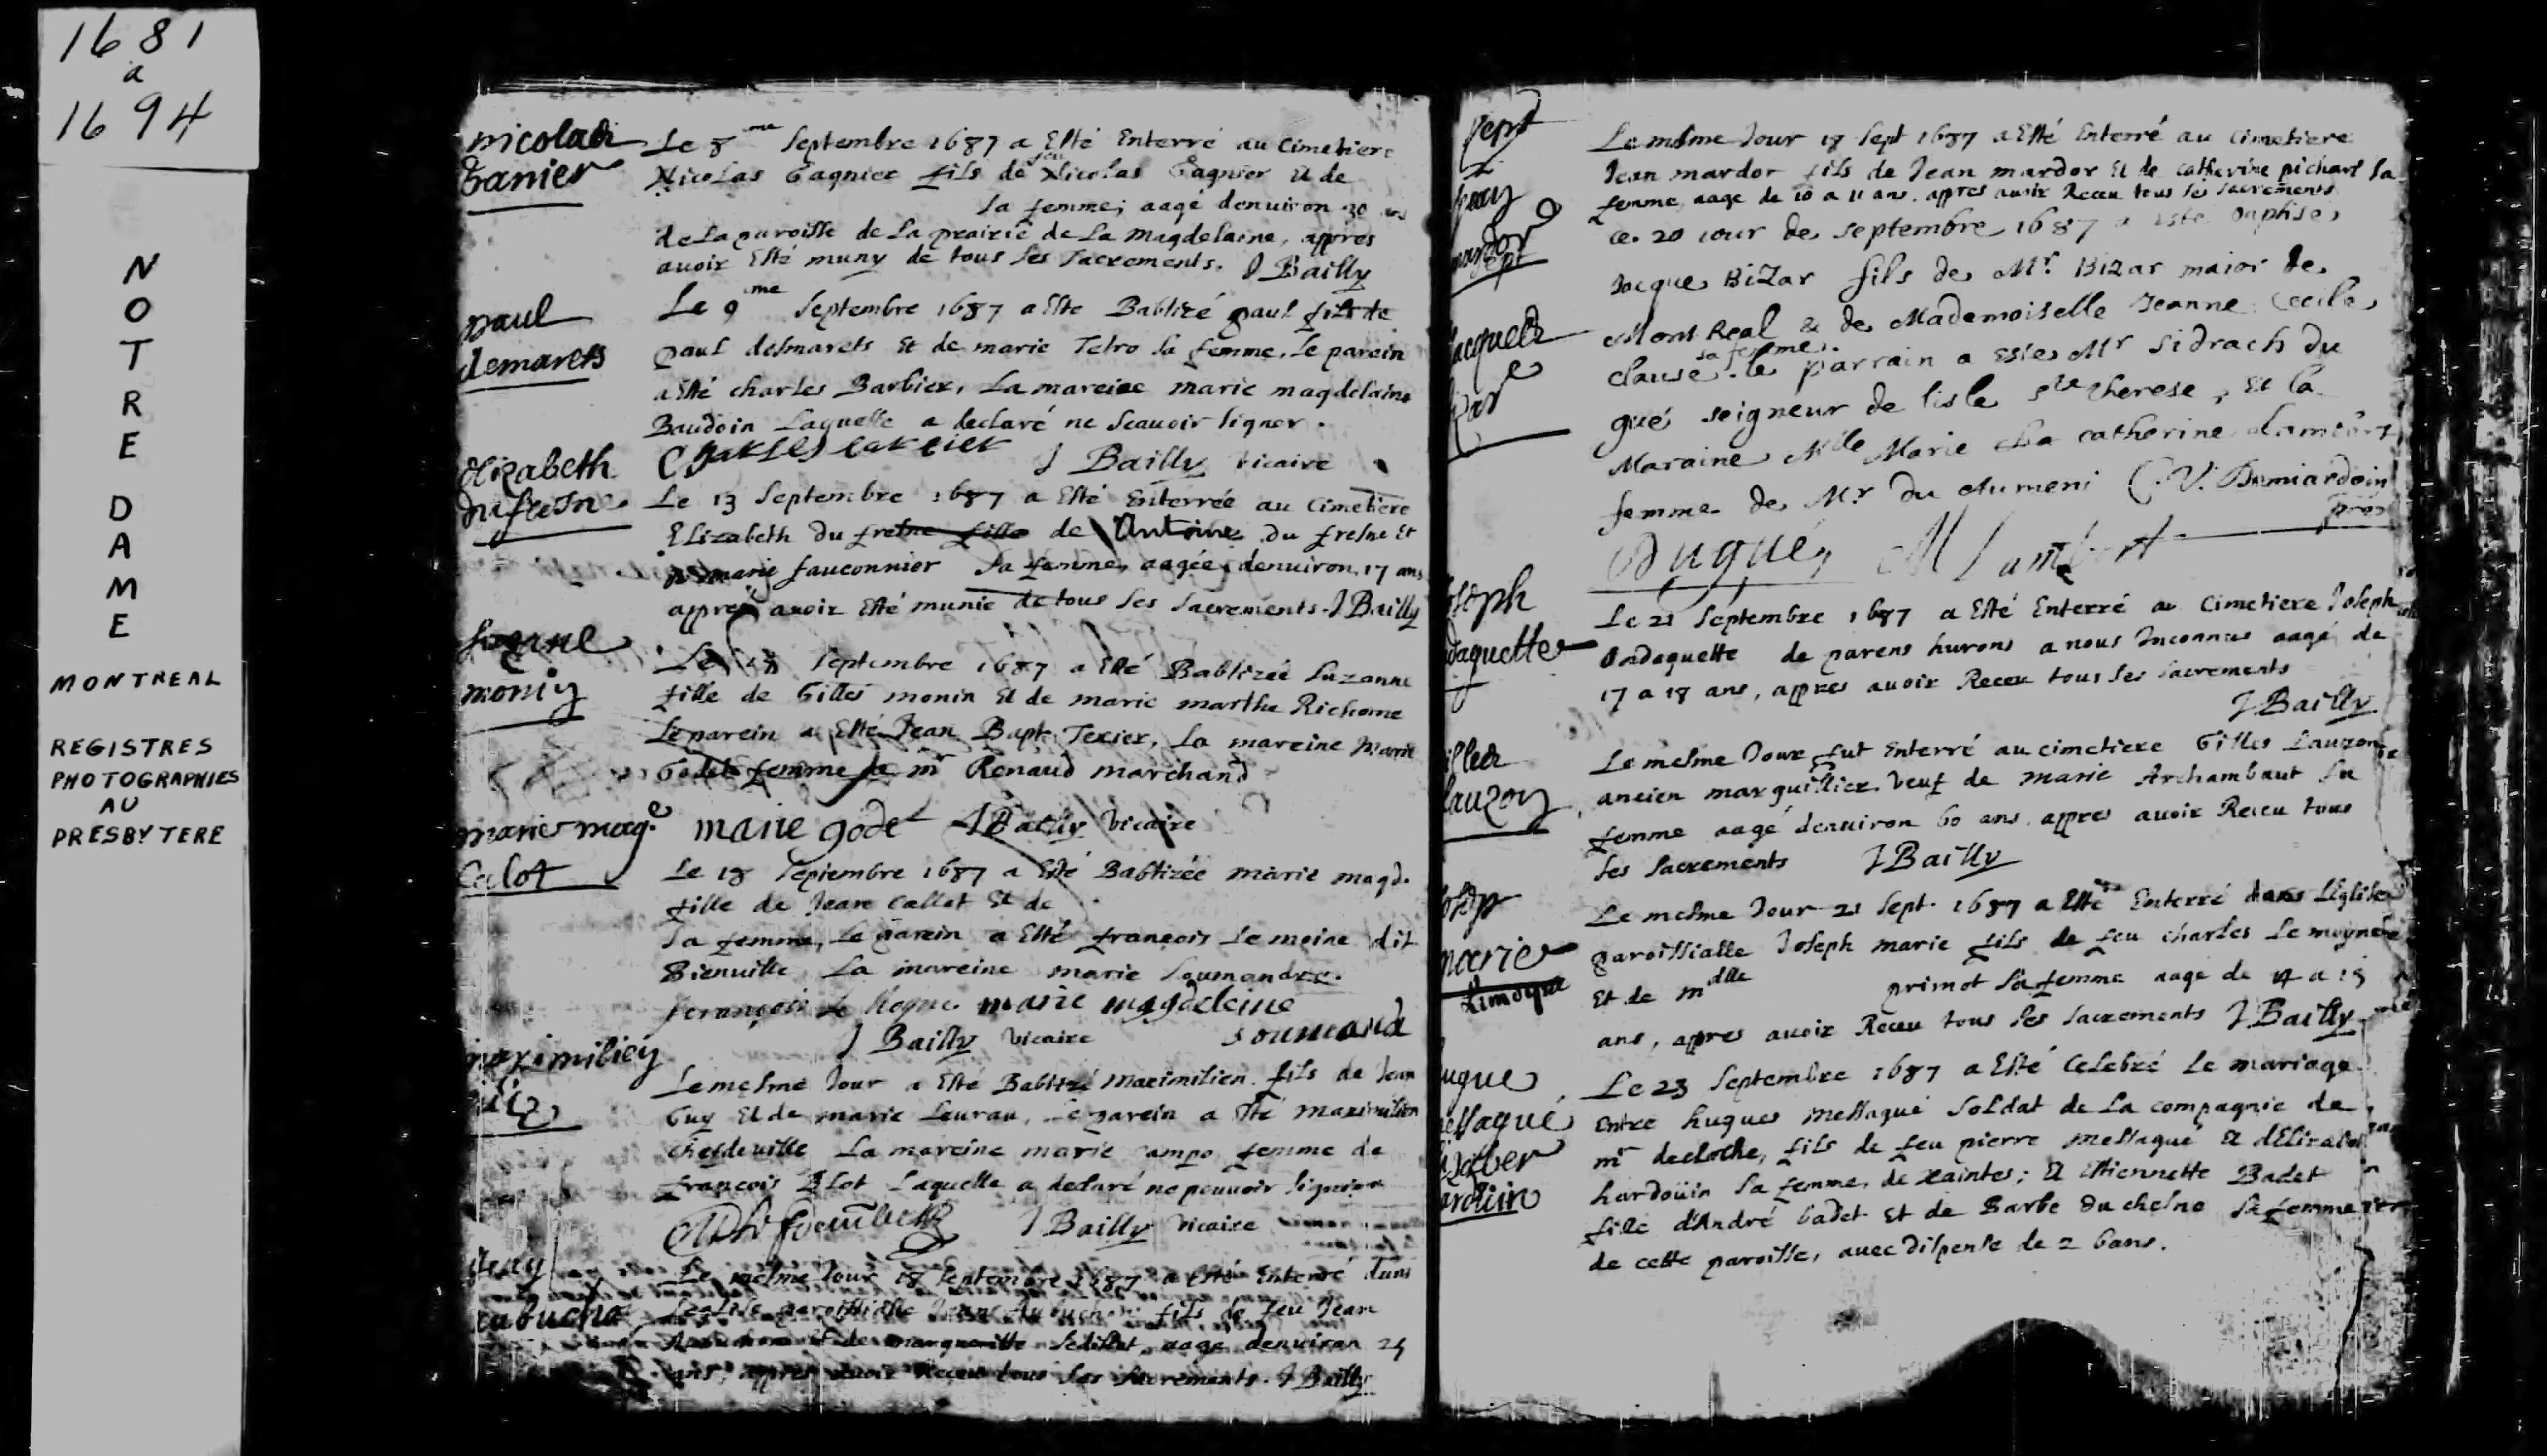 1681
a
1694
NOTRE
DAME
MONTREAL
REGISTRES
PHOTOGRAPHIES
AU
PRESBYTERE
nicolas
Ganier
Le 8me Septembre 1687 a Esté Enterré au Cimetiere
Nicolas Gagnier fils de feu Nicolas Gagnier et de
sa femme, aagé denuiron 30 ans
de La paroisse de La prairie de La Magdelaine, appres
auoir Esté muny de tous les sacrements. J Bailly
paul
demarets
Le 9me Septembre 1687 a este Babtizé paul fils de
paul desmarets Et de marie Tetro sa femme. Le parein
a esté charles Barbier, La mareine marie magdelaine
Baudoin Laquelle a declaré ne scauoir signer.
Charles barbier J Bailly vicaire
Elizabeth
du fresne
Le 13 Septembre 1687 a Esté Enterrée au Cimetiere
Elizabeth du fresne fille de Antoine du fresne Et
marie fauconnier sa femme, aagée denuiron 17 ans
appres auoir Esté munie de tous les sacrements. J Bailly
monin
Le Septembre 1687 a Esté Babtizée Suzanne
fille de Gilles monin Et de marie marthe Richome
Le parein a Esté Jean Bapt. Texier, La mareine Marie
Godet femme de mr Renaud marchand
marie godet J Bailly vicaire
marie mag.e
Calot
Le 18 Septembre 1687 a Esté Babtizée marie magd.
fille de Jean Callot Et de
sa femme, Le parein a Esté françois Le moine dit
Bienuille La mareine marie Soumandre.
francois le Moyne marie magdeleine
J Bailly vicaire soumande
maximilien
Le mesme Jour a Esté Babtizé maximilien fils de Jean
Guy Et de marie Leurau, Le parein a Esté maximilien
chefdeuille La mareine marie campo femme de
françois Blot Laquelle a declaré ne pouuoir signer
J Bailly vicaire
Jean
aubucho
Le mesme Jour 18 Septembre 1687 a Esté Enterré dans
Leglise paroissialle Jean Aubuchon fils de feu Jean
Aubuchon Et de marguerite Sedillot, aagé denuiron 25
ans, appres auoir Receu tous les sacrements. J Bailly
sept
Jean
mardor
Le mesme Jour 18 Sept 1687 a Esté Enterré au Cimetiere
Jean mardor fils de Jean mardor Et de catherine pichart sa
femme, aage de 10 a 11 ans. appres auoir Receu tous les sacrements
sept
Jacques
bizar
ce. 20 iour de septembre 1687 a este baptisé
Jacque Bizar fils de Mr. Bizar maior de
Mont Real & de Mademoiselle Jeanne Cecile
clause sa femme. le parrain a este Mr sidrach du
gué seigneur de lisle ste therese, Et la
Maraine Mlle Marie catherine Lambert
femme de Mr du dumeni
Dugué, M Lambert
Joseph
ndaquette
Le 21 Septembre 1687 a Esté Enterré au Cimetiere Joseph
Ondaquette de parens hurons a nous Inconnus aagé de
17 a 18 ans, appres auoir Receu tous les sacrements
J Bailly
illes
lauzon
Le mesme Jour fut Enterré au cimetiere Gilles Lauzon
ancien marguillier veuf de marie Archambaut sa
femme aagé denuiron 60 ans. appres auoir Receu tous
les sacrements J Bailly
marie
Limoyne
Le mesme Jour 21 Sept. 1687 a Esté Enterré dans Léglise
paroissialle Joseph marie fils de feu charles Le moyne
Et de mdlle primot sa femme aage de 14 a 15
ans, appres auoir Receu tous les sacrements J Bailly
ugue
essaqué
Le 23 Septembre 1687 a Esté Celebré Le mariage
Entre hugues messaqué soldat de La compagnie de
mr decloche, fils de feu pierre messaqué & dElizabet
hardoüin sa femme, de xaintes; & Ettiennette Badet
fille d'André badet Et de Barbe du chesne sa femme
de cette paroisse, auec dispense de 2 bans.